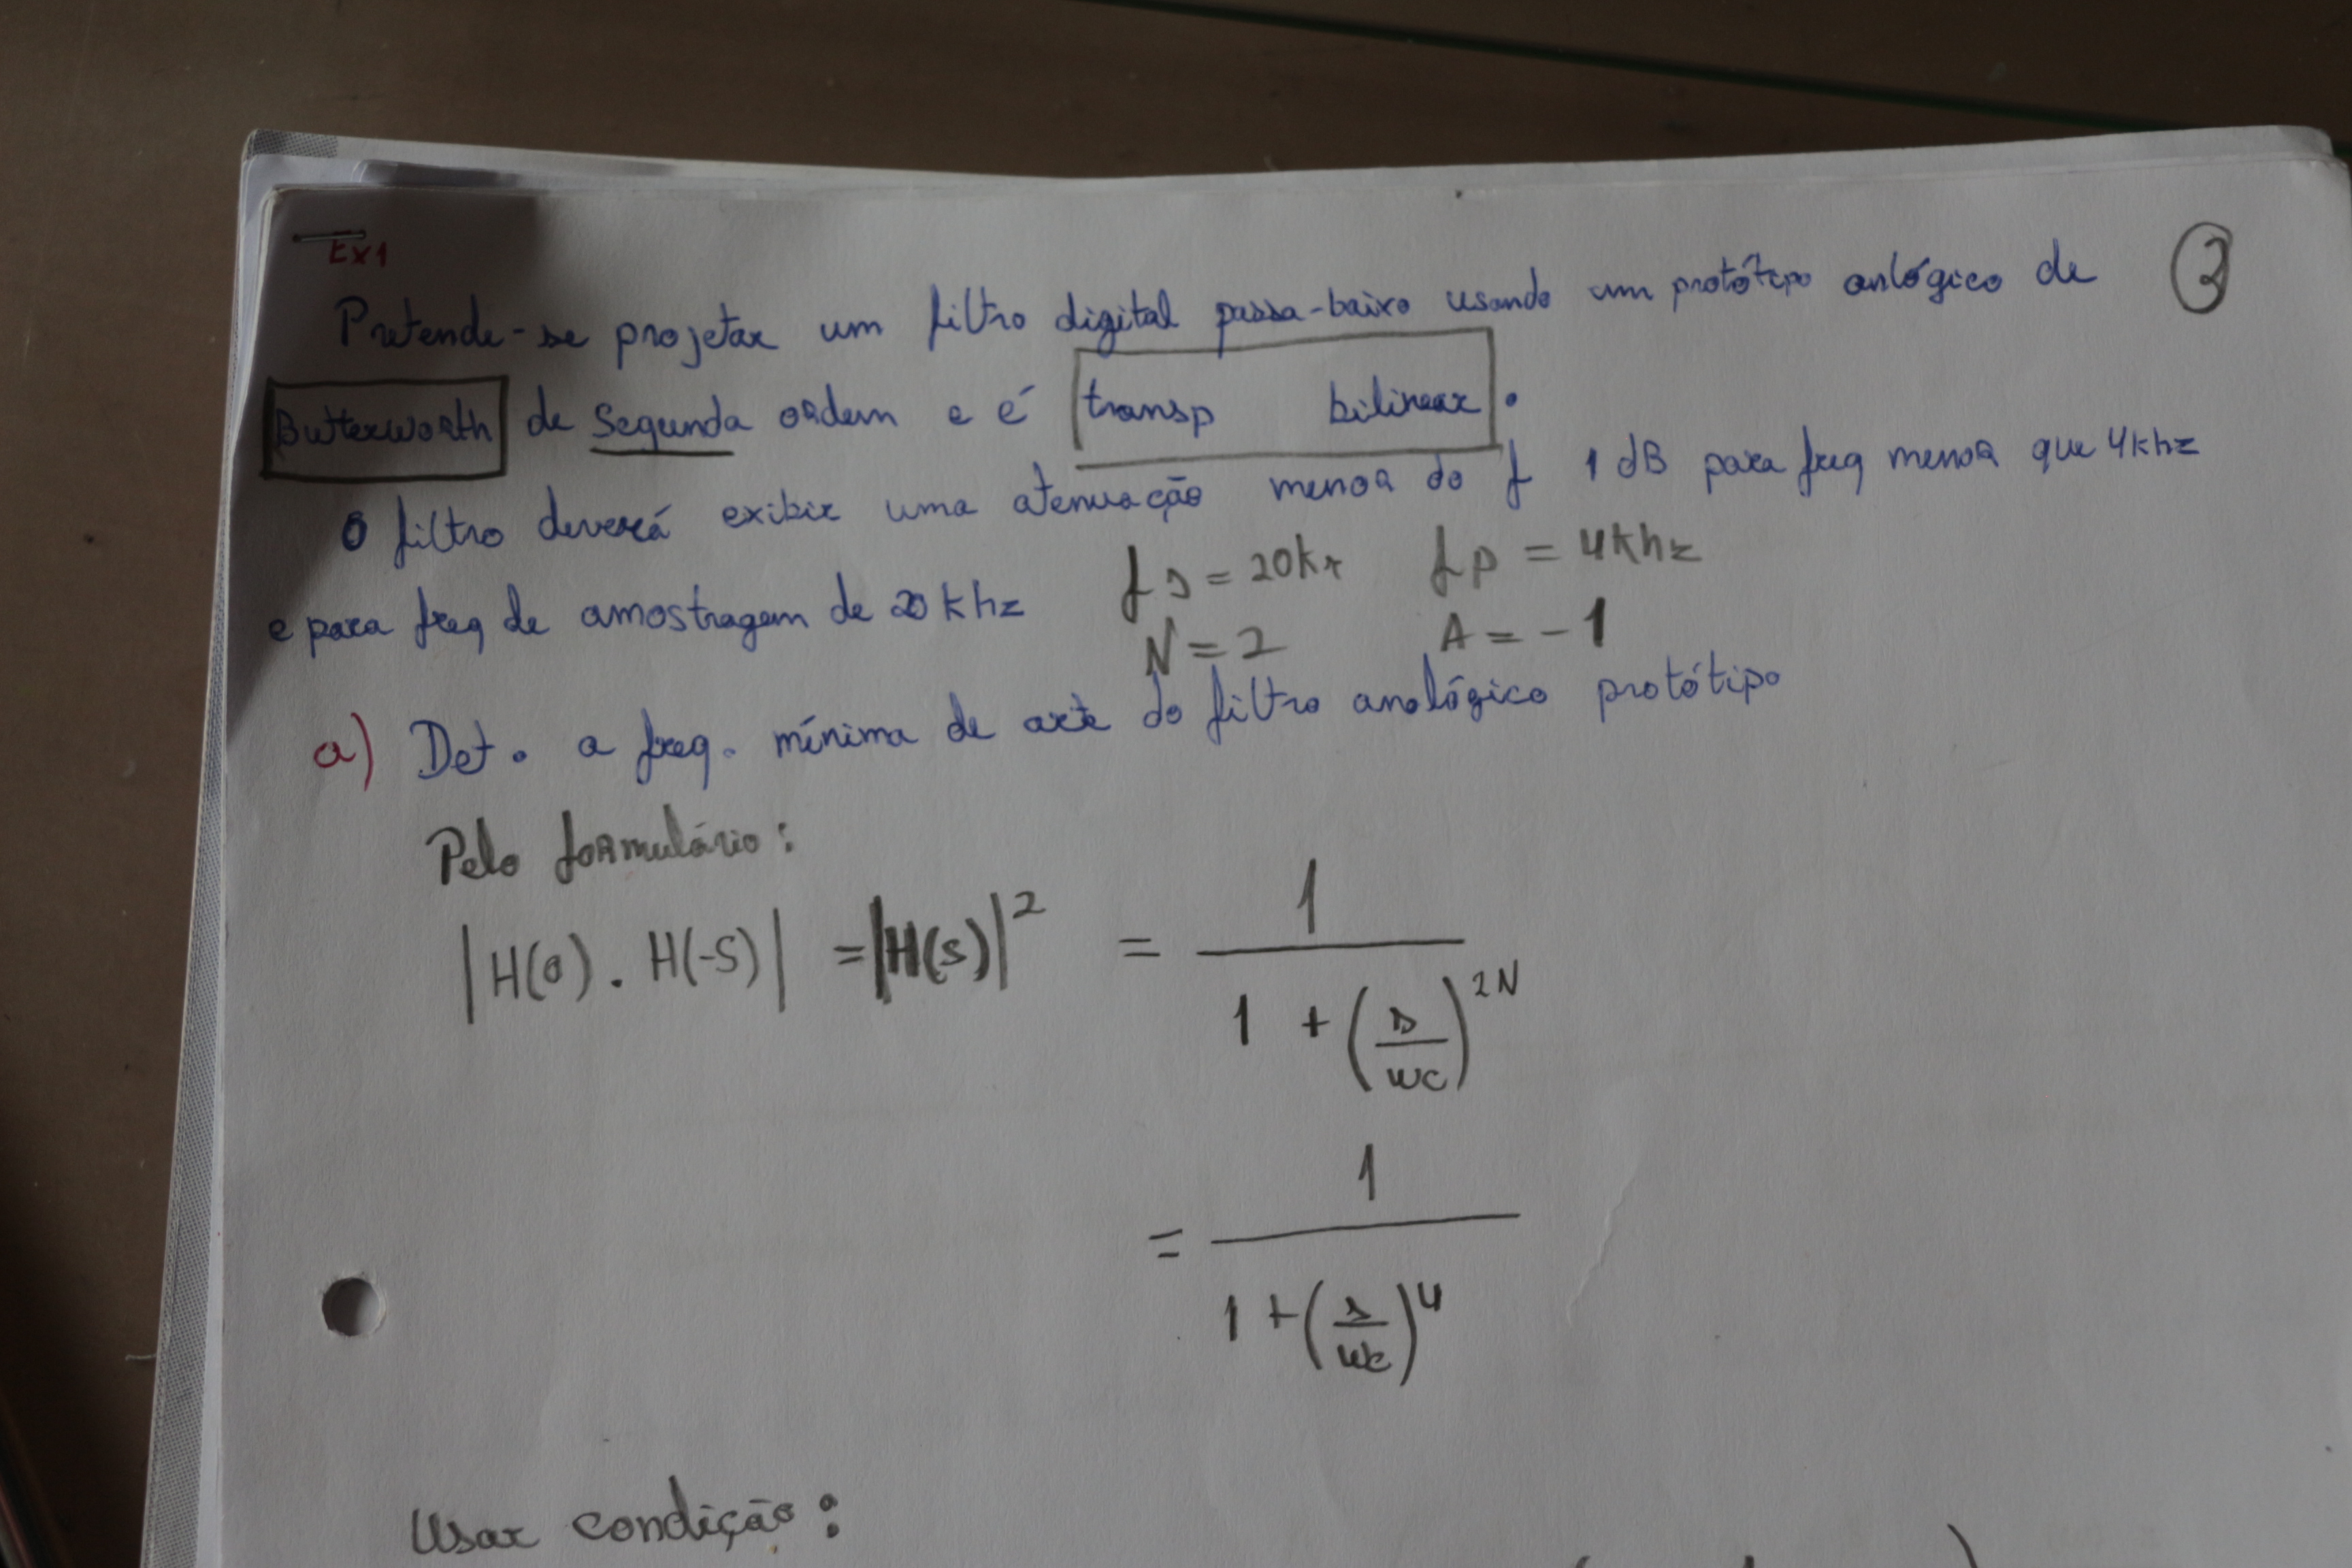 Ex1
Pretende-se projetar um filtro digital passa-baixo usando um protótipo anlógico de
2
Butterworth de Segunda ordem e é transp bilinear.
O filtro deverá exibir uma atenuação menor do f 1 dB para freq menor que 4khz
e para freq de amostragem de 20 khz
fs = 20k fp = 4khz
N = 2 A = -1
a) Det. a freq. mínima de do filtro analógico protótipo
Pelo formulário:
|H(s) . H(-S)| = |H(s)|² = 1 / (1 + (s/wc)^2N)
= 1 / (1 + (s/wc)^4)
Usar condição: